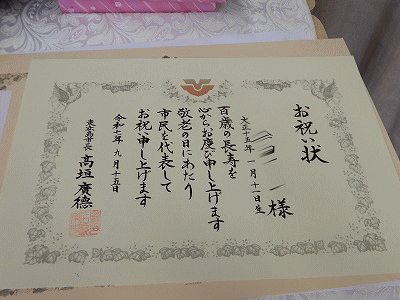 お祝い状
様
大正十五年 一月十一日生
百歳の長寿を
心からお慶び申し上げます
敬老の日にあたり
市民を代表して
お祝い申し上げます
令和七年 九月十五日
東広島市長 高垣廣德